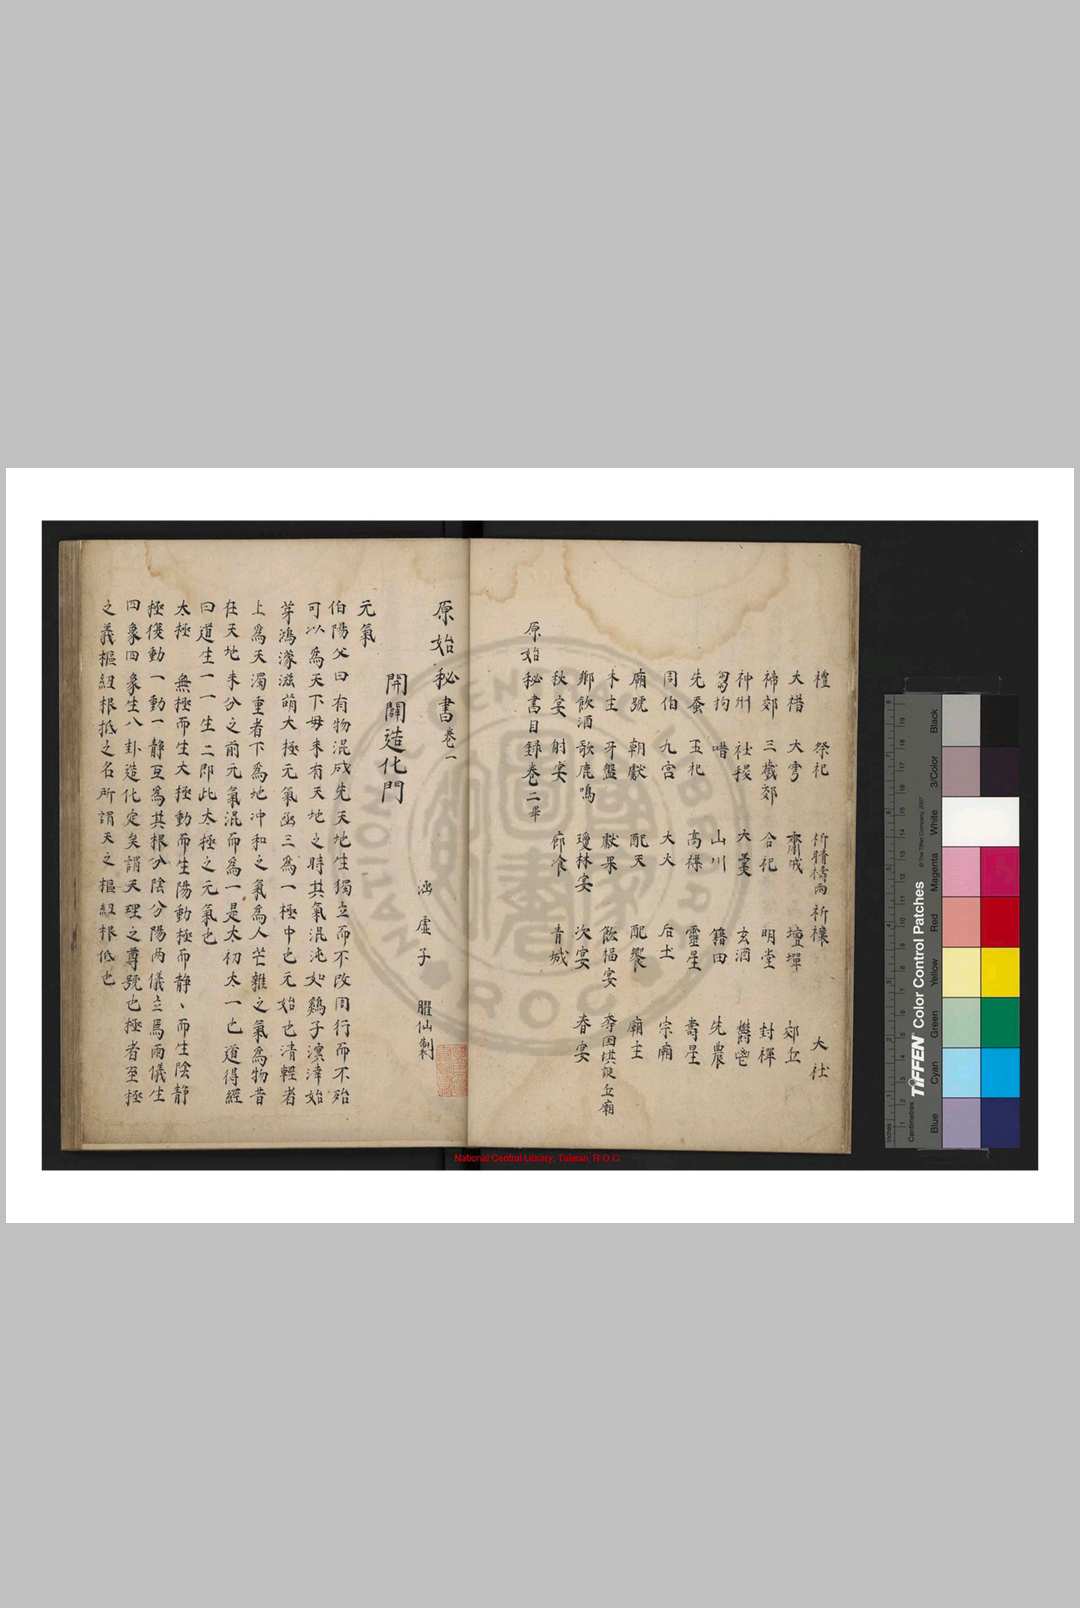 禮 祭祀 祈晴禱雨 祈穰 大社
大禘 大雩 齋戒 壇墠 郊丘
禘郊 三歲郊 合祀 明堂 封禪
神州 社稷 大羹 玄酒 鬱鬯
芻狗 唶 山川 籍田 先農
先蚕 五祀 高禖 靈星 壽星
周伯 九宮 大火 后土 宗廟
廟號 朝獻 配天 配饗 廟主
木主 牙盤 獻果 飲福宴 丘廟
鄉飲酒 歌鹿鳴 瓊林宴 次宴 春宴
秋宴 射宴 廊飡 青城
原始秘書目録卷二畢
原始秘書卷一
涵虚子 臞仙製
開闢造化門
元氣
伯陽父曰有物混成先天地生獨立而不改周行而不殆
可以為天下毋未有天地之時其氣混沌如鷄子溟涬始
芽鴻濛滋萌大極元氣函三為一極中也元始也清輕者
上為天濁重者下為地冲和之氣為人芒雜之氣為物昔
在天地未分之前元氣混而為一是太初太一也道得經
曰道生一一生二即此太極之元氣也
太極 無極而生大極動而生陽動極而靜、而生陰靜
極復動一動一靜互為其根分陰分陽两儀立焉兩儀生
四象四象生八卦造化定矣謂天理之尊號也極者至極
之義樞紐根抵之名所謂天之樞紐根低也
National Central Library, Taiwan, R.O.C.
NATIONAL CENTRAL LIBRARY
R.O.C.
TIFFEN Color Control Patches
© The Tiffen Company, 2007
Centimetres
Inches
Blue
Cyan
Green
Yellow
Red
Magenta
White
3/Color
Black